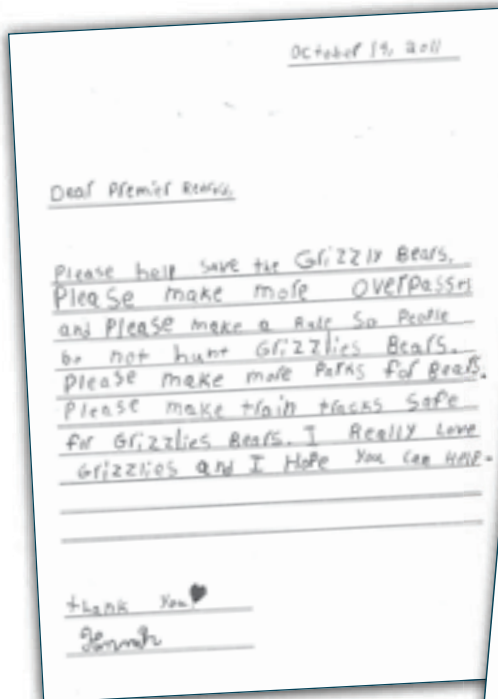 October 19, 2011
Dear Premier
Please help save the Grizzly Bears.
Please make more overpasses
and Please make a Rule So People
do not hunt Grizzlies Bears.
Please make more Parks for Bears.
Please make train tracks Safe
for Grizzlies Bears. I Really Love
Grizzlies and I Hope You Can HELP.
thank You